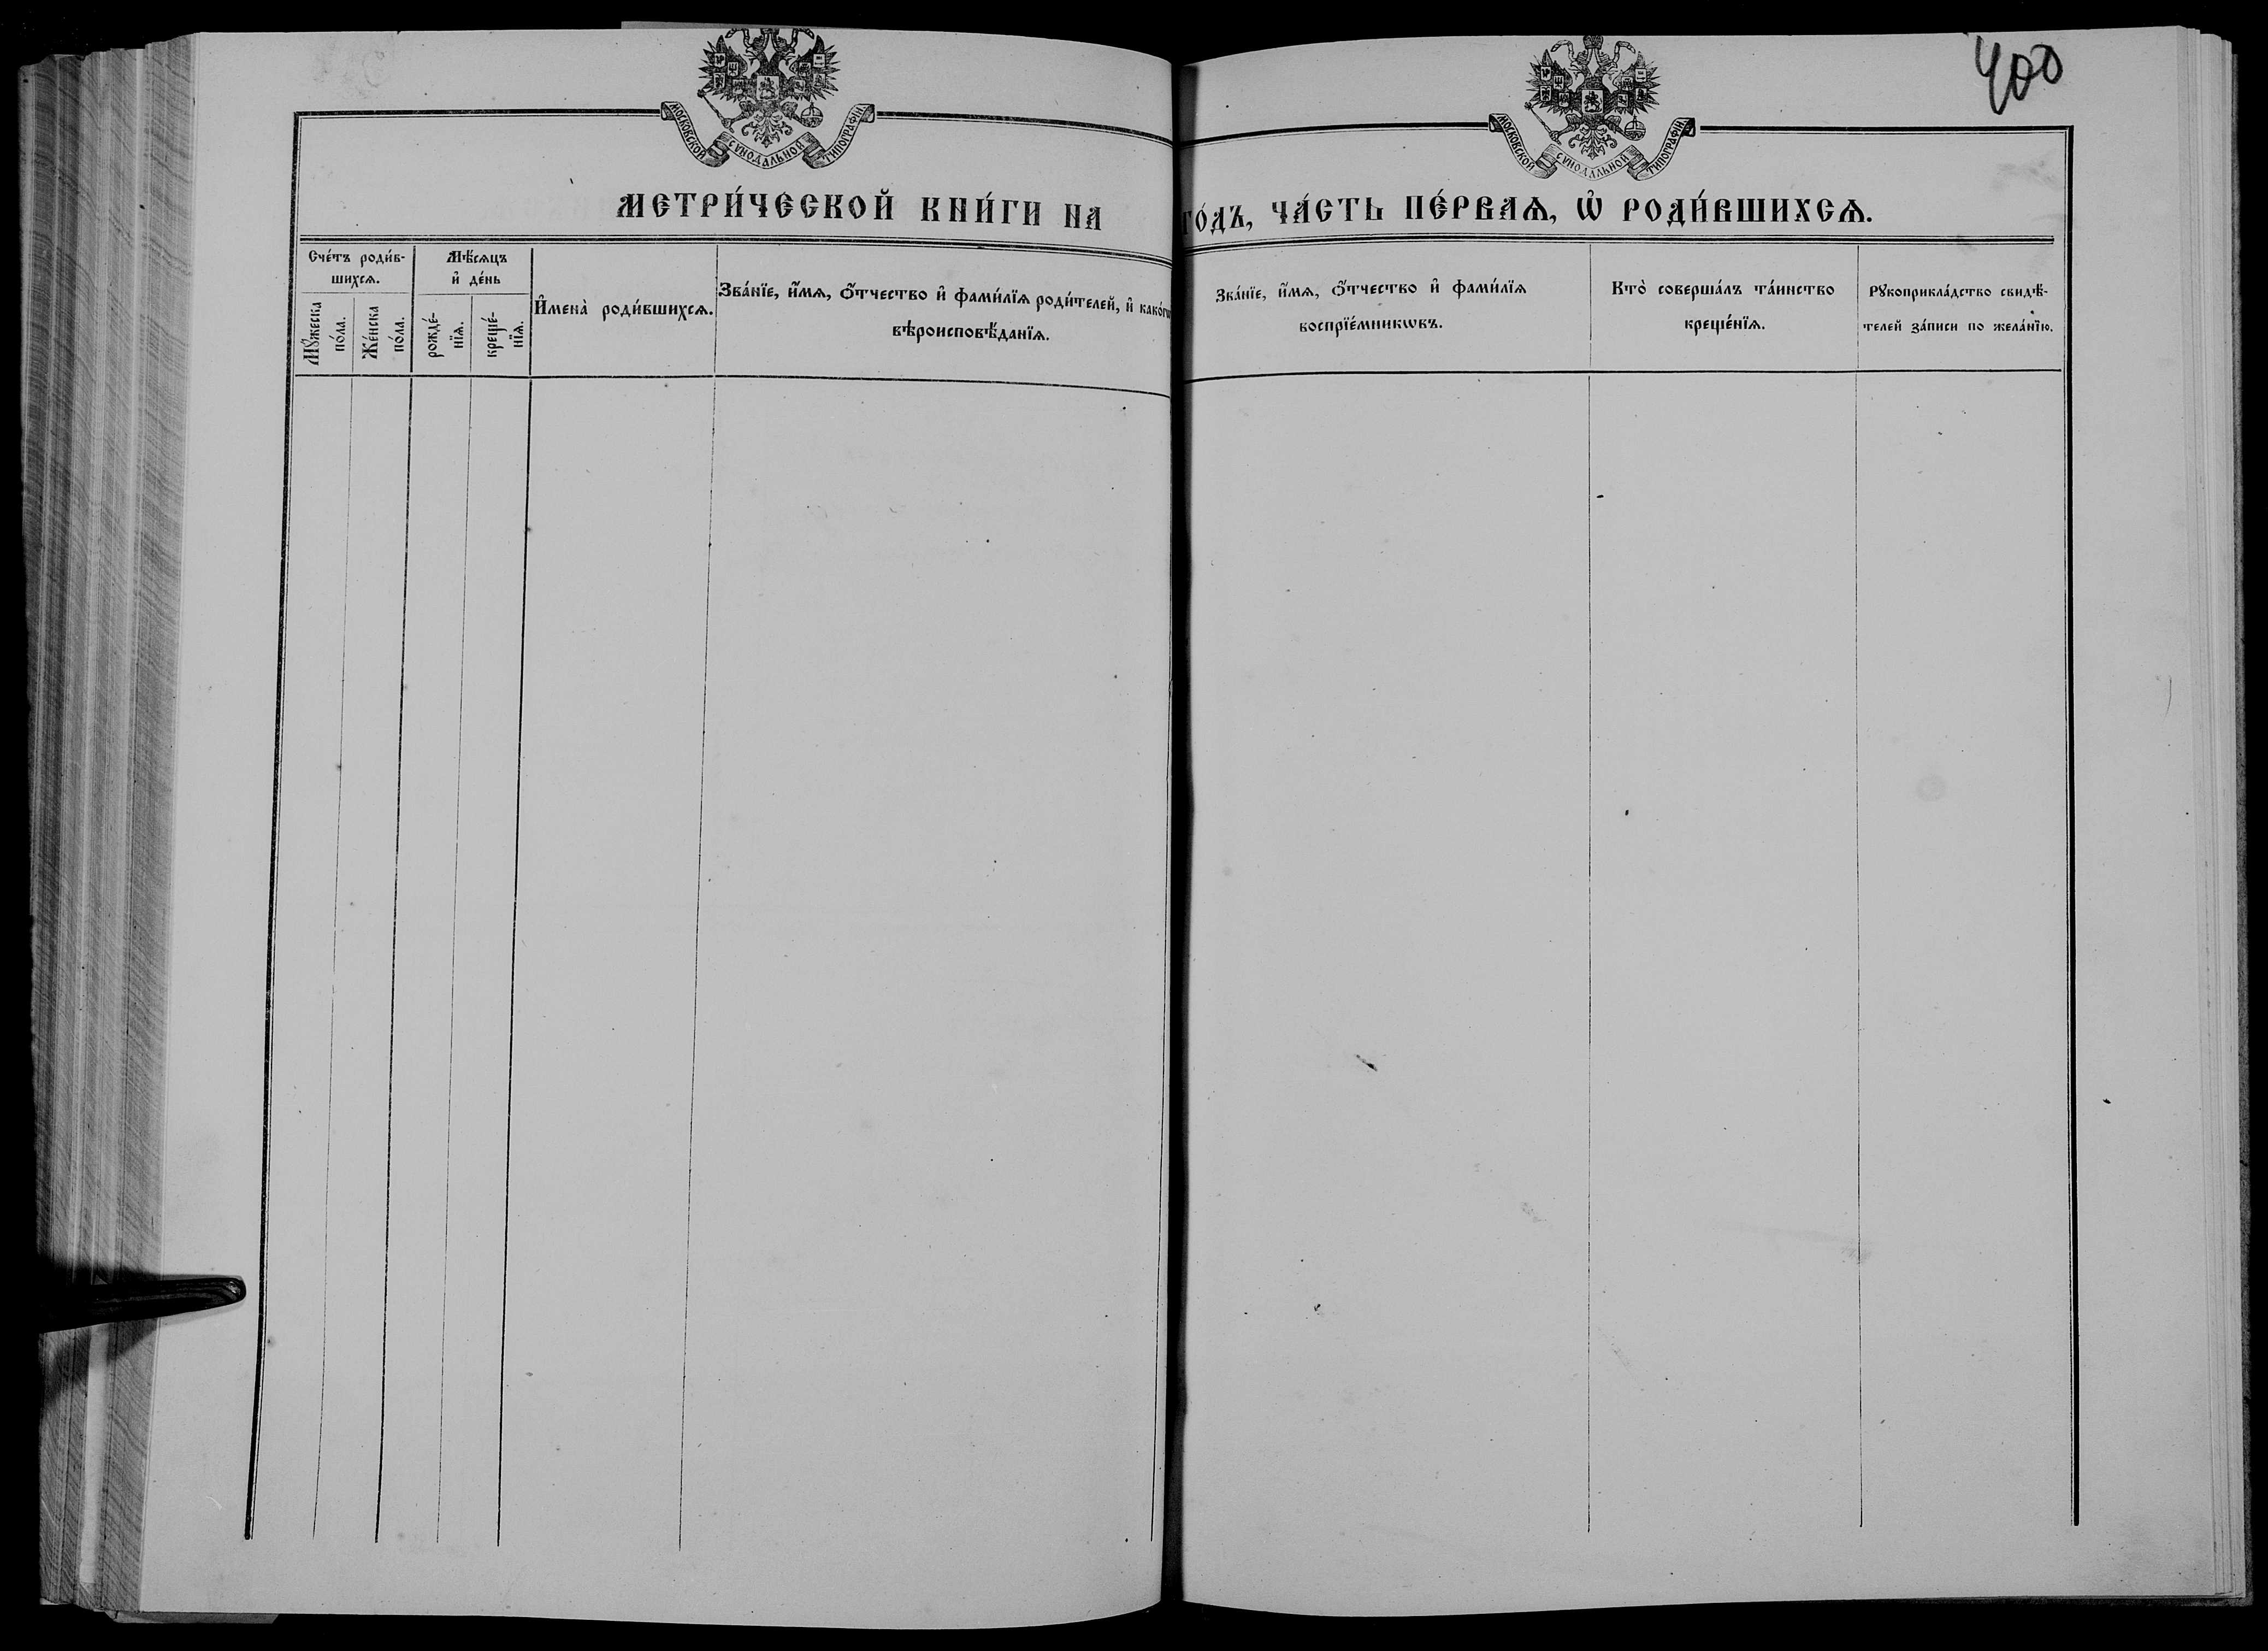 400
МОСКОВСКОЙ СѴНОДАЛЬНОЙ ТИПОГРАФІИ.
МОСКОВСКОЙ СѴНОДАЛЬНОЙ ТИПОГРАФІИ.
МЕТРИ́ЧЕСКОЙ КНИ́ГИ НА ГО́ДЪ, ЧА́СТЬ ПЕ́РВАѦ, Ѡ҆ РОДИ́ВШИХСѦ.
Сче́тъ роди́в-
шихсѧ.
Мꙋ́жеска
по́ла.
Же́нска
по́ла.
Мѣ́сѧцъ
и҆ де́нь
рожде́-
нїѧ.
креще́-
нїѧ.
И҆мена̀ роди́вшихсѧ.
Зва́нїе, и҆́мѧ, ѻ҆́тчество и҆ фами́лїѧ роди́телей, и҆ како́гѡ
вѣроисповѣ́данїѧ.
Зва́нїе, и҆́мѧ, ѻ҆́тчество и҆ фами́лїѧ
воспрїе́мникѡвъ.
Кто̀ соверша́лъ та́инство
креще́нїѧ.
Рꙋкоприкла́дство свидѣ́-
телей за́писи по жела́нїю.